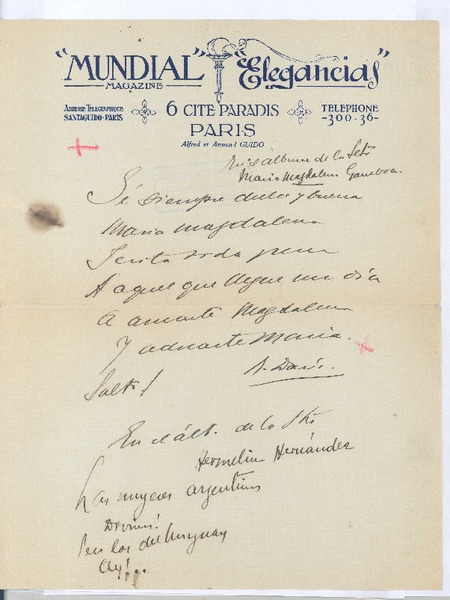 "MUNDIAL" "Elegancias"
MAGAZINE
ADRESSE TELEGRAPHIQUE
SANTAGUIDO-PARIS
6 CITÉ PARADIS
PARIS
TELEPHONE
-300-36-
Alfred et Armand GUIDO
En el álbum de la Srta
Maria Magdalena Gamboa.
Sé siempre dulce y buena
Maria Magdalena
Evita toda pena
A aquel que llegue un día
A amarte Magdalena
Y adorarte Maria.
R. Darío.
Salto!
En el alb. de la Srta
Hermelina Hernández
Las mujeres argentinas
Divinas!
Pero las del Uruguay
Ay!...